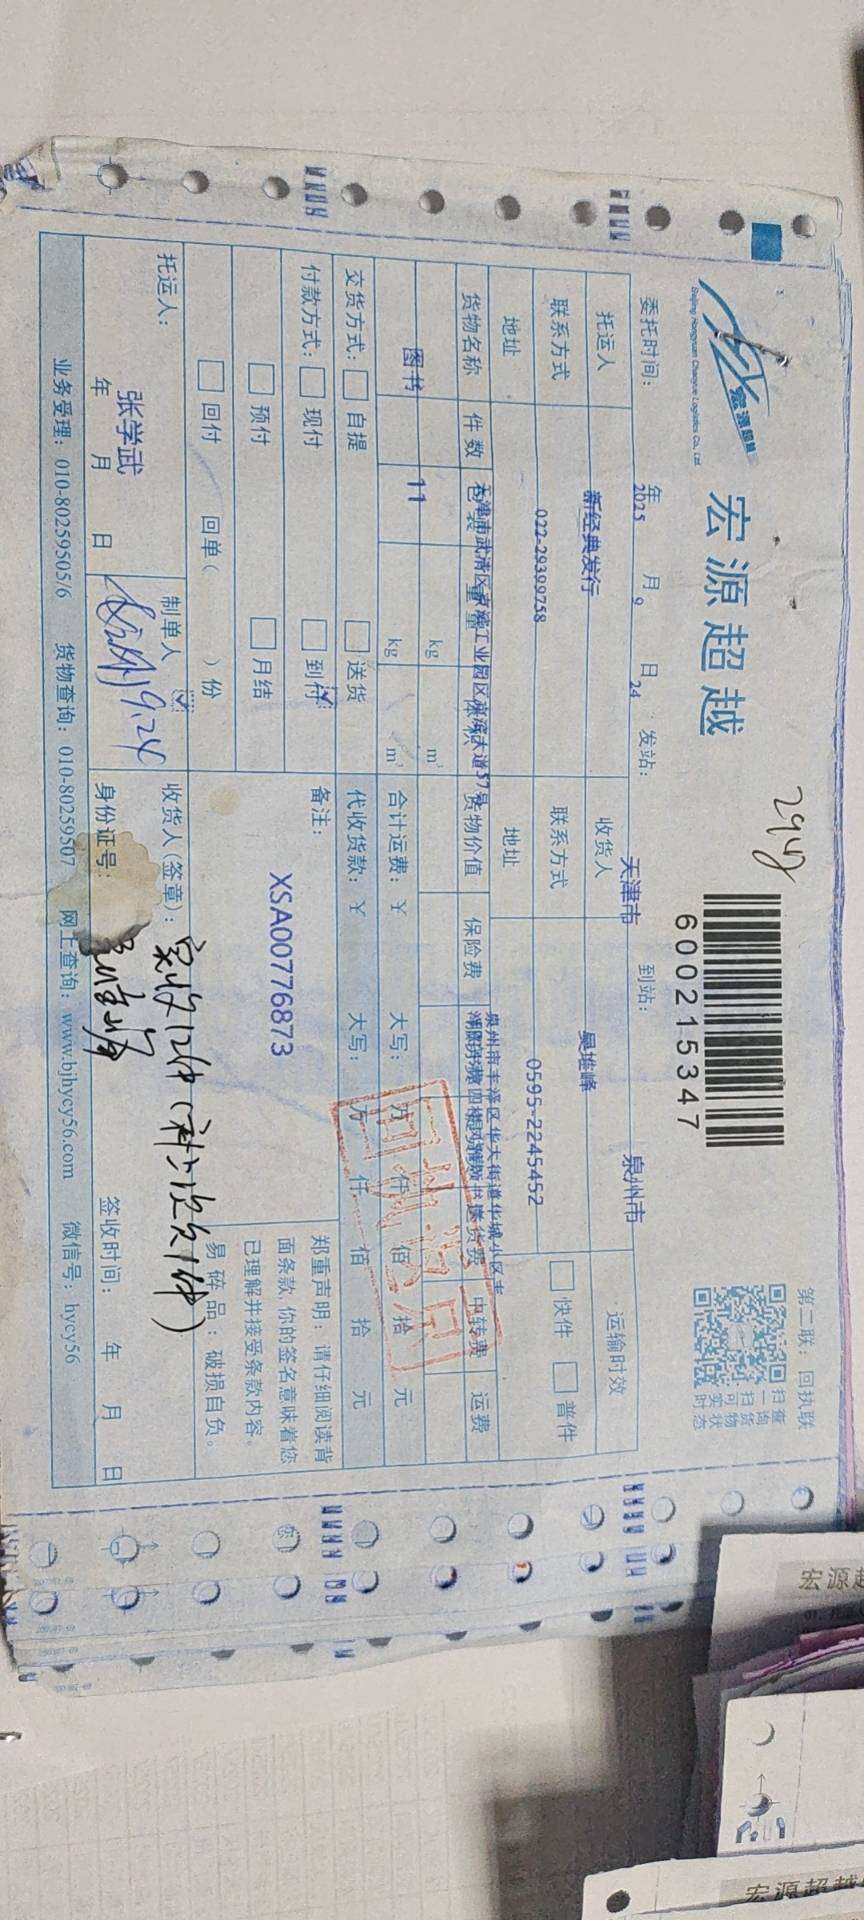 宏源超越
Beijing Hongyuan Chaoyue Logistics Co., Ltd
宏源超越
600215347
第二联：回执联
扫一扫可实时
查询货物状态
委托时间： 2025 年 9 月 24 日 发站： 天津市 到站： 泉州市
托运人 新经典发行 收货人 运输时效
联系方式 022-29399758 联系方式 0595-2245452 快件 普件
地址 天津市武清区京滨工业园区京滨大道57号 地址 泉州市丰泽区华大街道华城小区
货物名称 件数 包装 重量 体积 货物价值 保险费 送货费 中转费 运费
图书 11 kg m³
kg m³
合计运费：¥ 大写： 万 仟 佰 拾 元
交货方式： 自提 送货 代收货款：¥ 大写： 万 仟 佰 拾 元
付款方式： 现付 到付 备注：
预付 月结 XSA00776873
回付 回单（ ）份
郑重声明：请仔细阅读背
面条款，你的签名意味着您
已理解并接受条款内容。
易碎品：破损自负。
托运人： 张学武 制单人 收货人(签章)： 实收12件
年 月 日 9.24 身份证号： 签收时间： 年 月 日
业务受理：010-80259505/6 货物查询：010-80259507 网上查询：www.bjhycy56.com 微信号：hycy56
宏源超
宏源超越